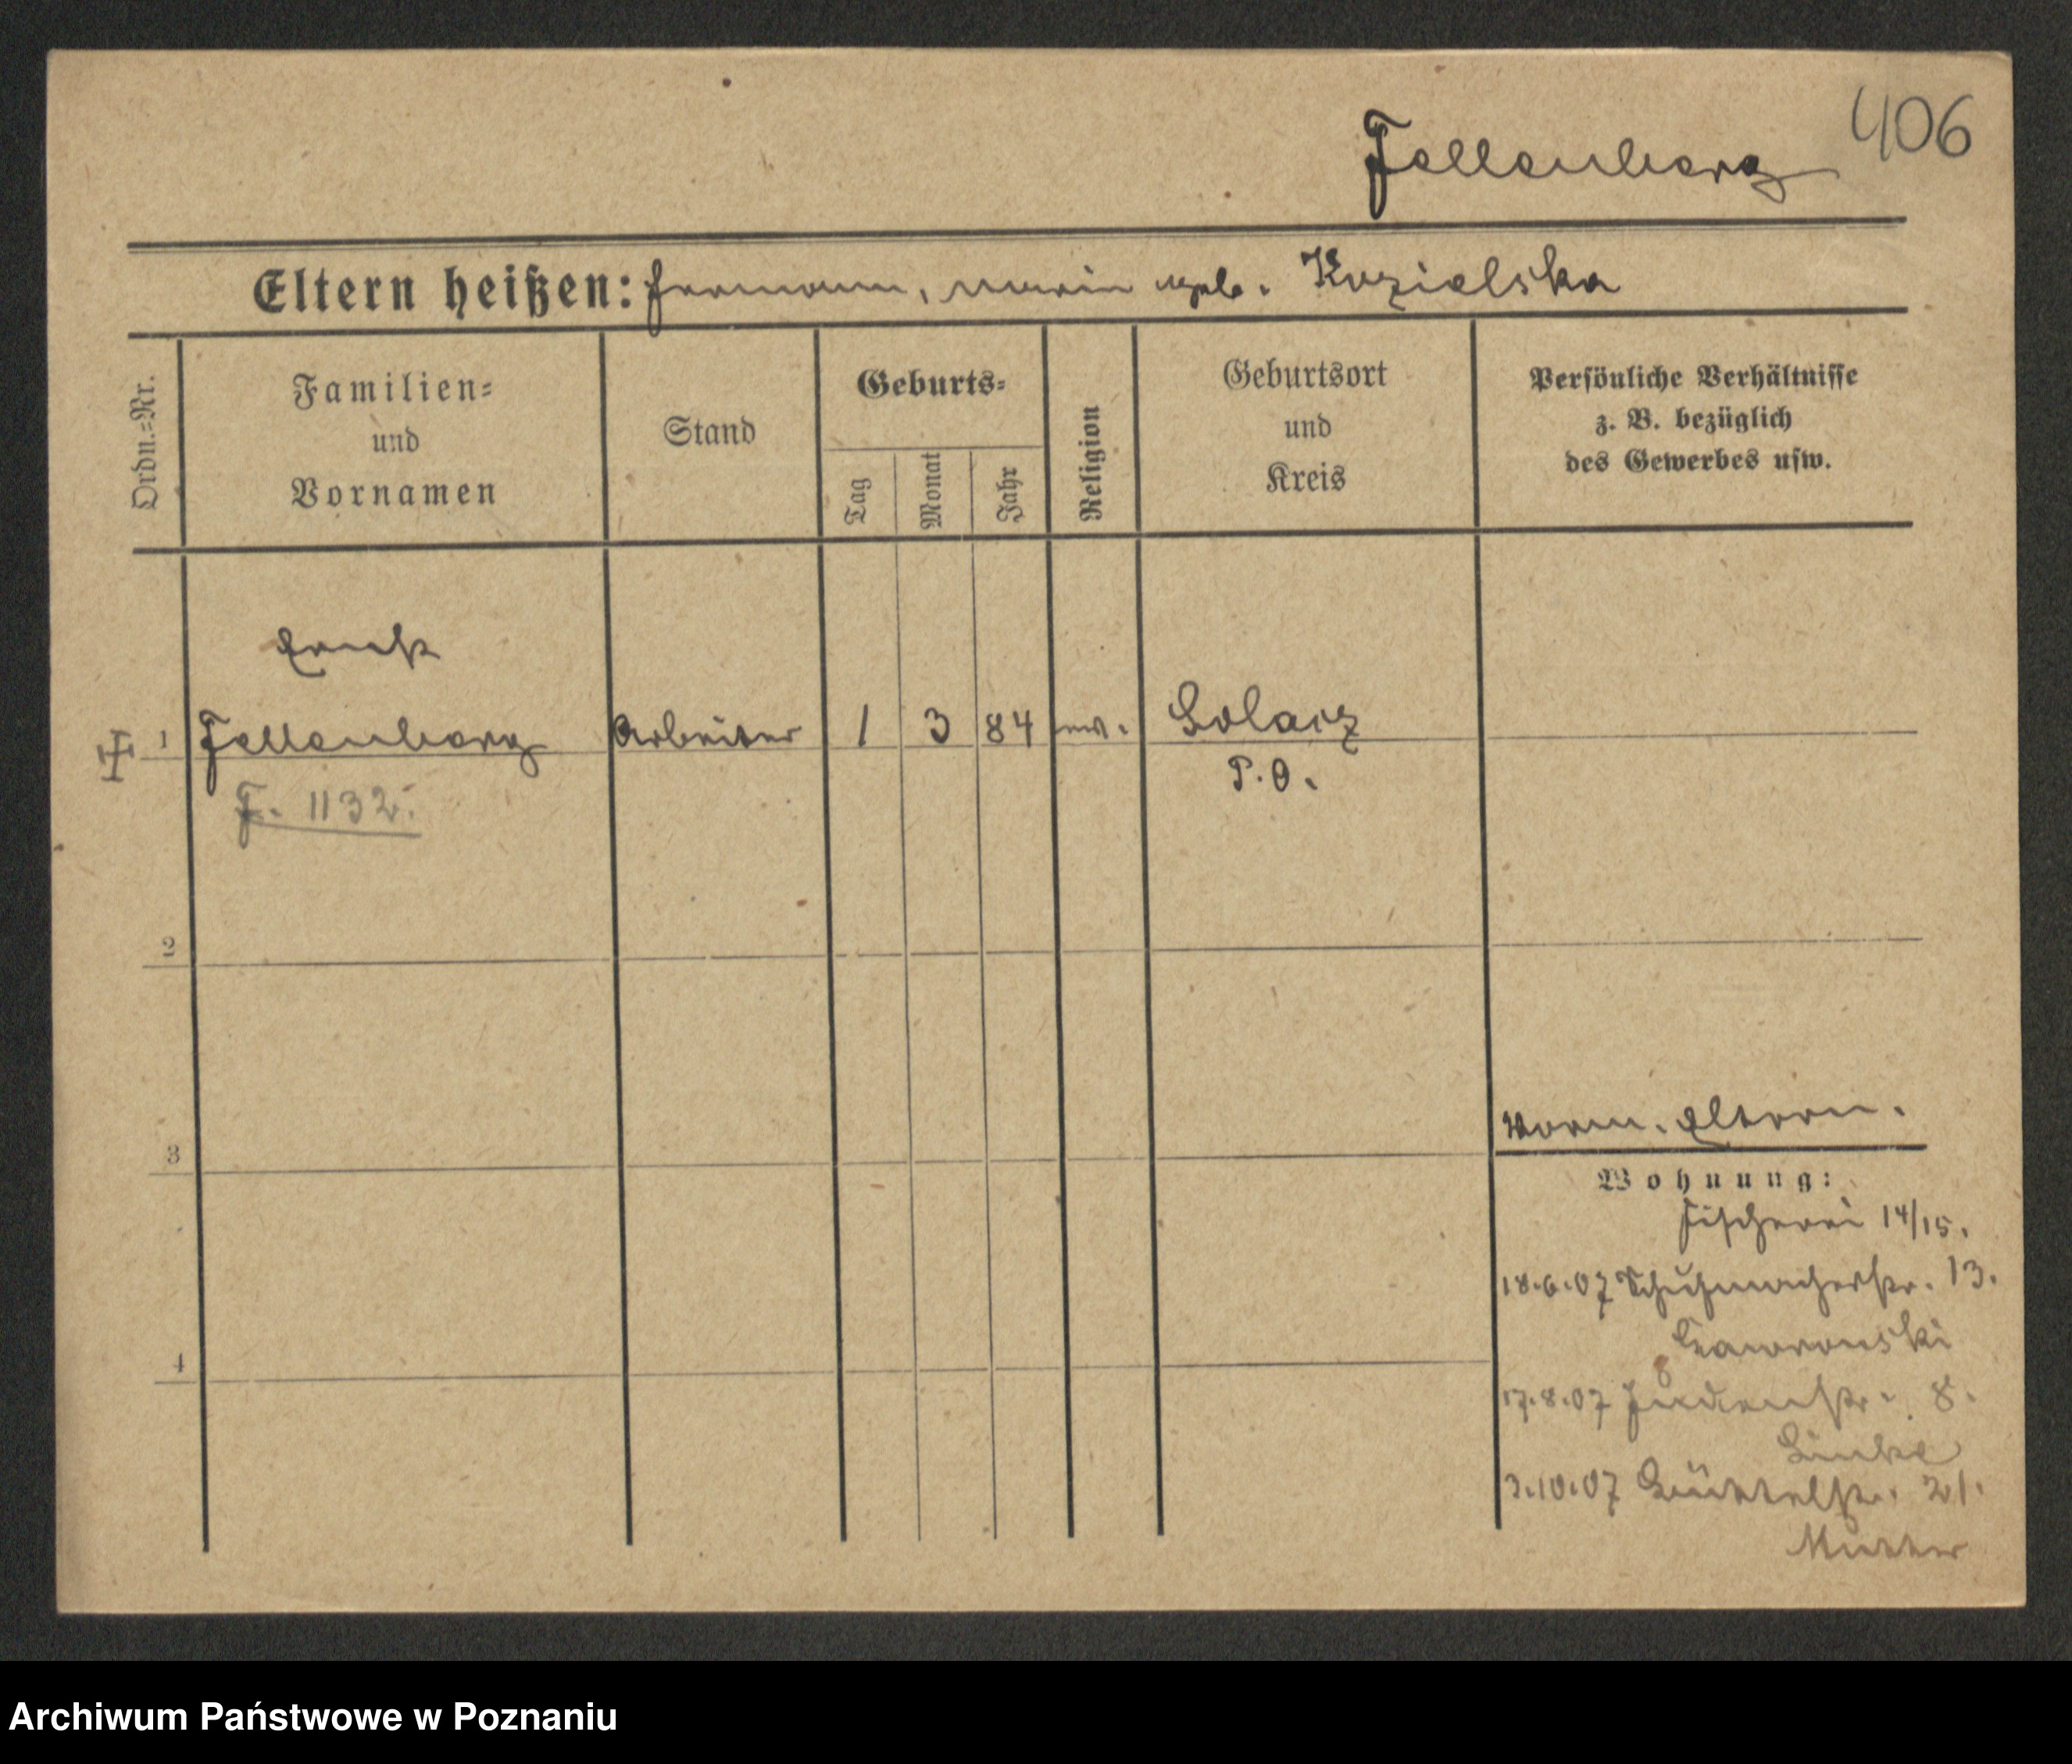 406
Fellenberg
Eltern heißen: Hermann, Marie geb. Kozielska
Ordn.=Nr.
Familien=
und
Vornamen
Stand
Geburts=
Tag
Monat
Jahr
Religion
Geburtsort
und
Kreis
Persönliche Verhältnisse
z. B. bezüglich
des Gewerbes usw.
Ernst
1 Fellenberg Arbeiter 1 3 84 ev. Solacz
P.O.
F. 1132.
2
3
4
Vorm. Eltern.
Wohnung:
Fischerei 14/15.
18.6.07 Schuhmacherstr. 13.
Gawronski
17.8.07 Judenstr. 8.
Linke
3.10.07 Büttelstr. 21.
Mutter
Archiwum Państwowe w Poznaniu